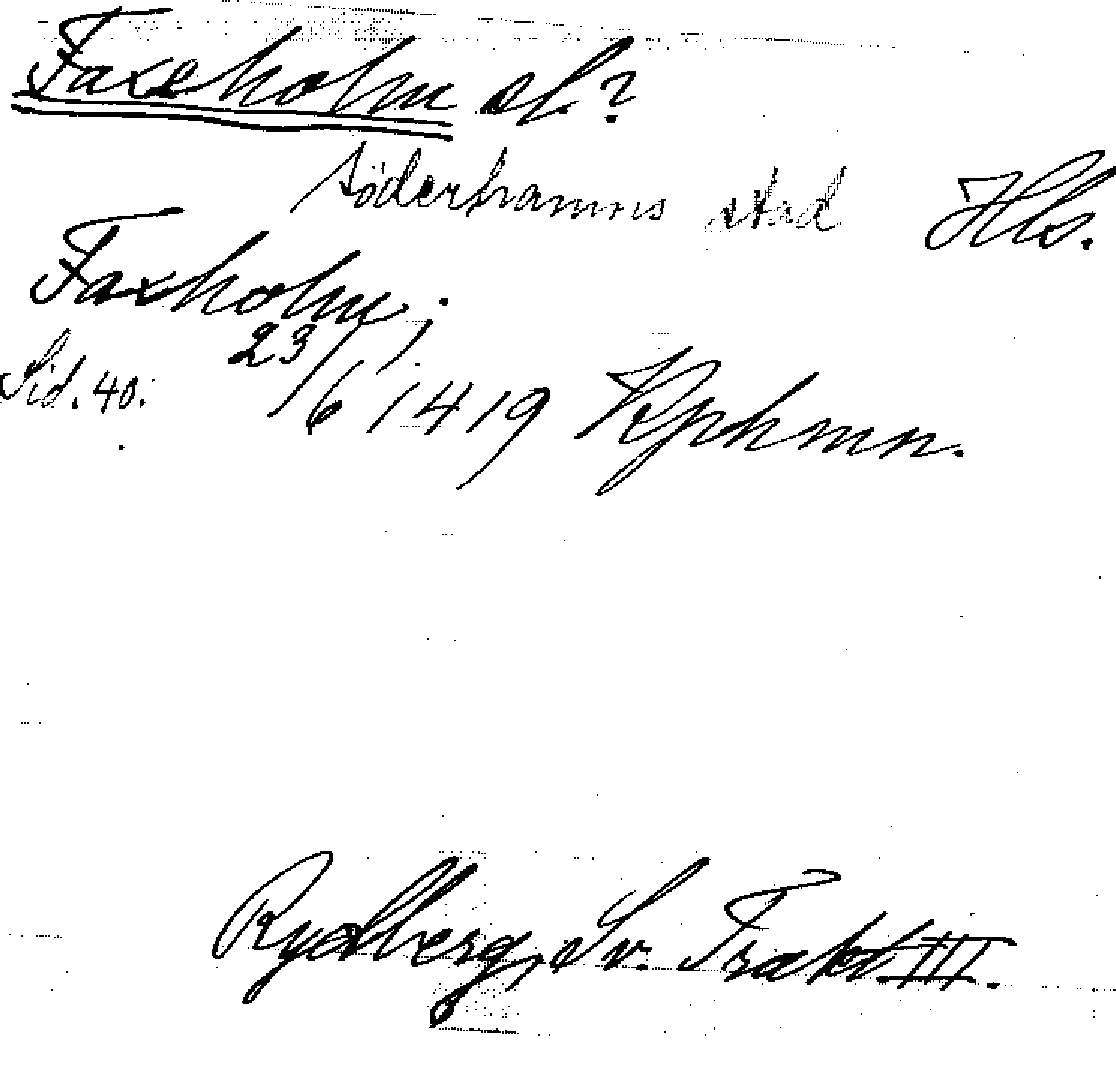 Faxeholm sl.?
Söderhamns stad Hls.
Faxholm;
Sid. 40. 23/6 1419 Kphmn.
Rydberg, Sv. Trakt. III.